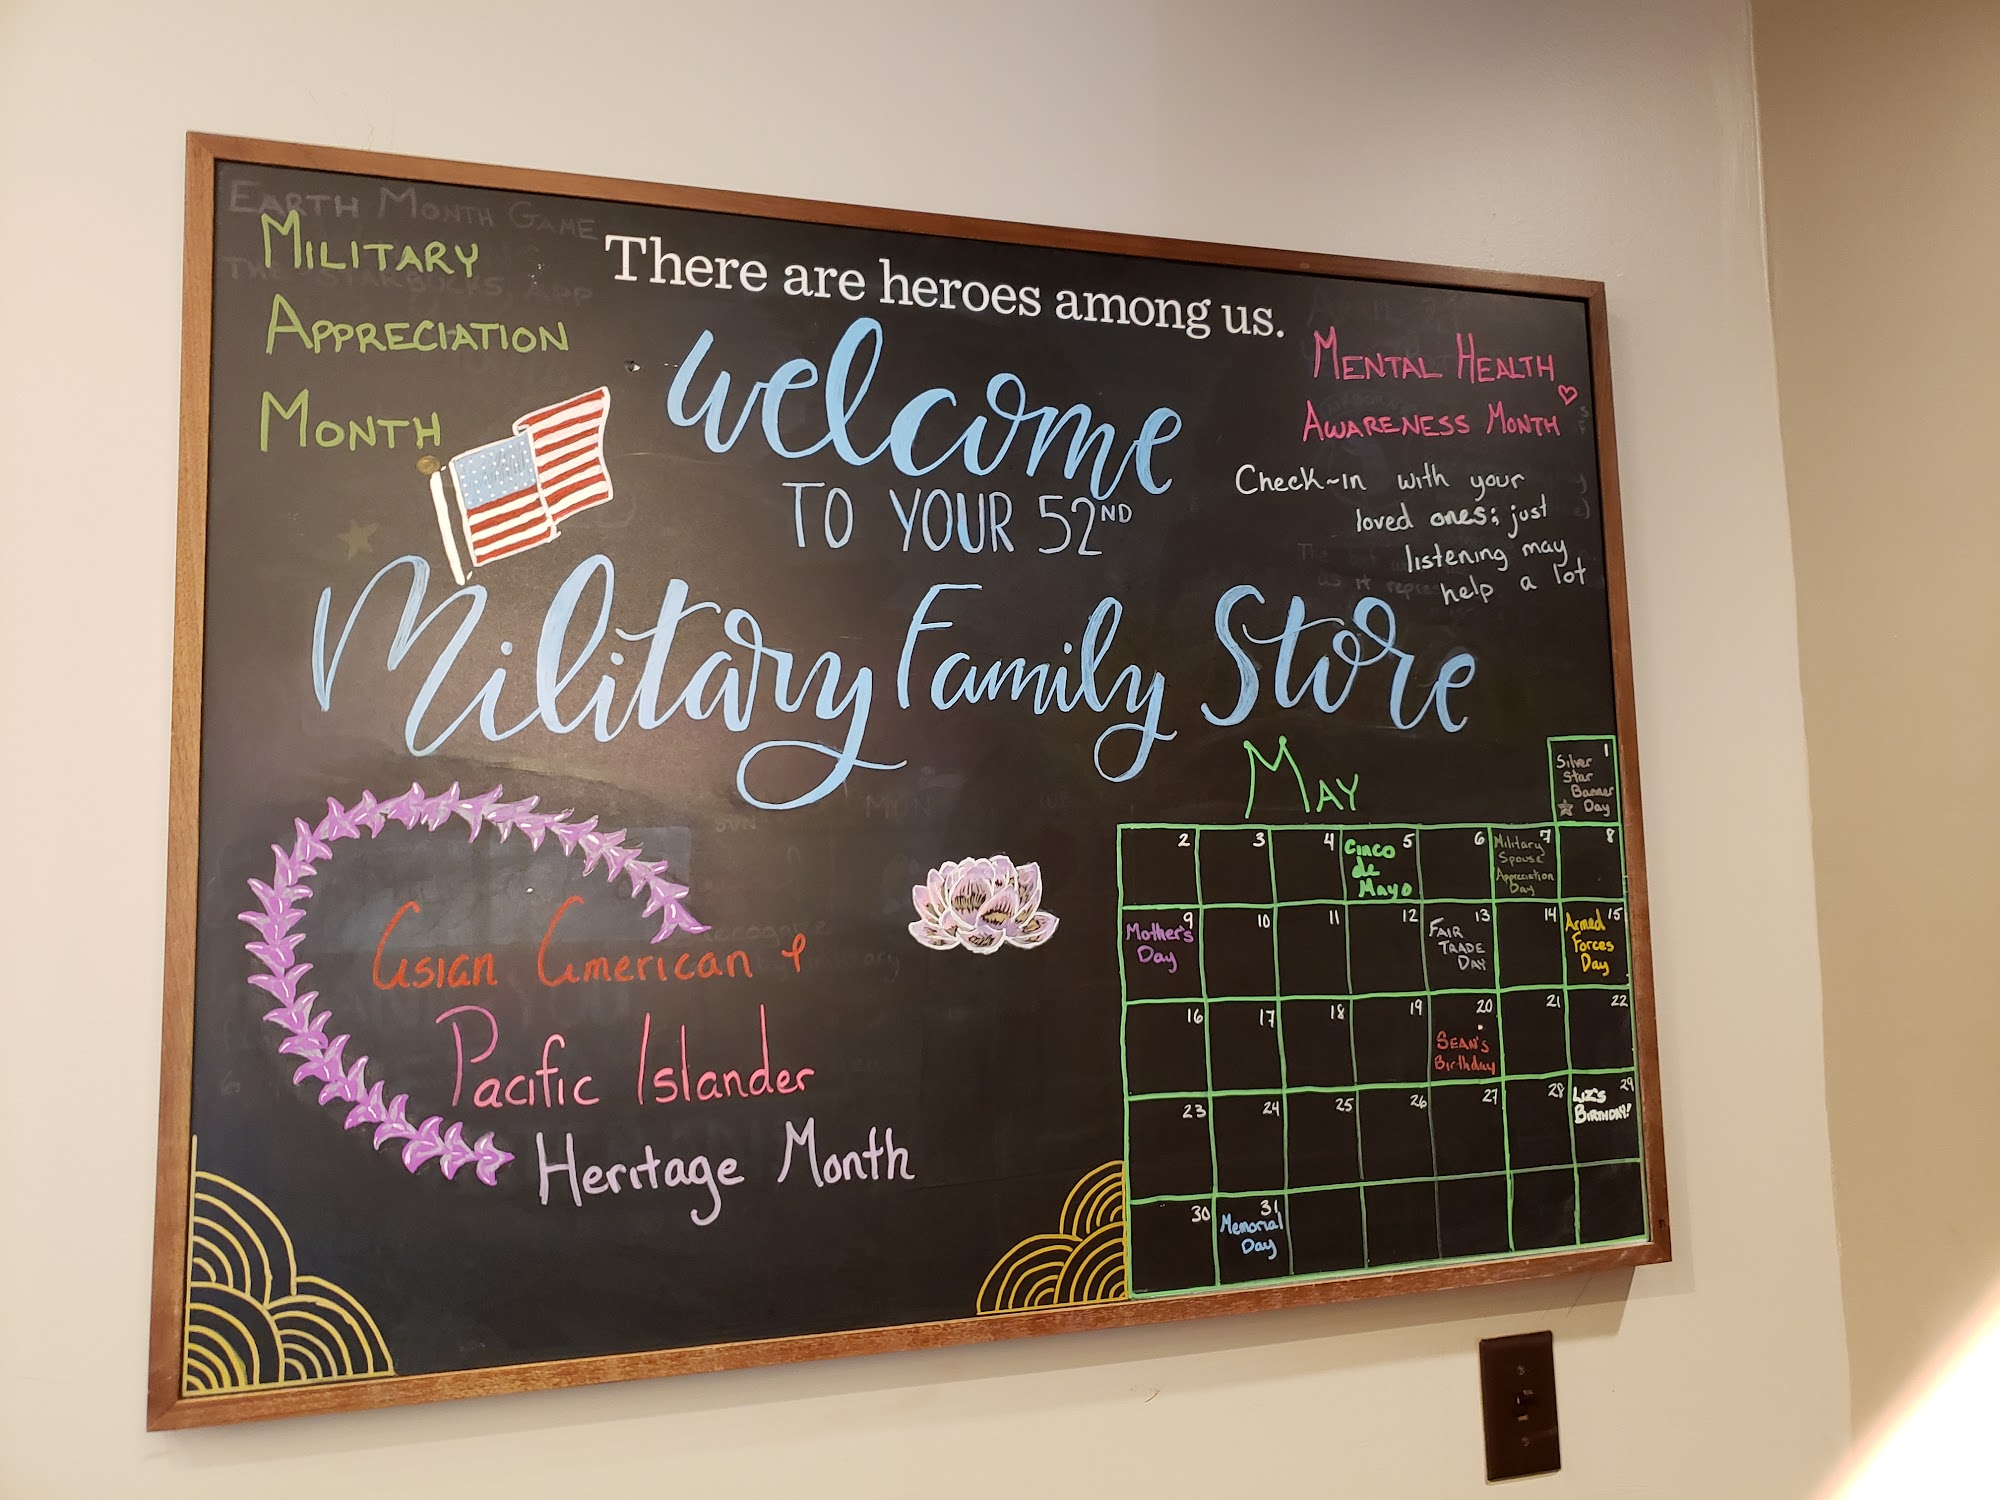 EARTH MONTH GAME
THE STARBUCKS APP
MILITARY
APPRECIATION
MONTH
There are heroes among us.
welcome
TO YOUR 52ND
Military Family Store
MENTAL HEALTH
AWARENESS MONTH
Check-in with your
loved ones; just
listening may
help a lot
Asian American &
Pacific Islander
Heritage Month
MAY
1
Silver
Star
Banner
Day
2 3 4 5 6 7 8
Cinco
de
Mayo
Military
Spouse
Appreciation
Day
9 10 11 12 13 14 15
Mother's
Day
FAIR
TRADE
DAY
Armed
Forces
Day
16 17 18 19 20 21 22
SEAN'S
Birthday
23 24 25 26 27 28 29
LIZ'S
BIRTHDAY!
30 31
Memorial
Day